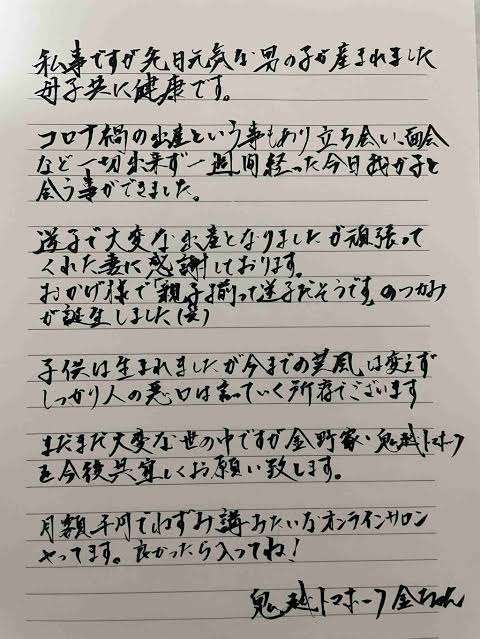 私事ですが先日元気な男の子が産まれました
母子共に健康です。
コロナ禍の出産という事もあり立ち会い、面会
など一切出来ず一週間経った今日我が子と
会う事ができました。
逆子で大変な出産となりましたが頑張って
くれた妻に感謝しております。
おかげ様で親子揃って逆子だそうです。のつかみ
が誕生しました(笑)
子供は生まれましたが今までの芸風は変えず
しっかり人の悪口は言っていく所存でございます
まだまだ大変な世の中ですが金野家・鬼越トマホーク
を今後共宜しくお願い致します。
月額千円でねずみ講みたいなオンラインサロン
やってます。良かったら入ってね!
鬼越トマホーク 金ちゃん